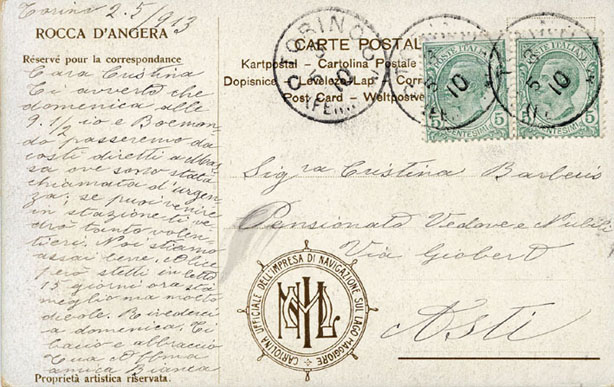 Torino 2.5/913
ROCCA D'ANGERA
Réservé pour la correspondance
Cara Cristina
Ti avverto che
domenica alle
9.1/2 io e
passeremo da
costì diretti a
sa ove sono stata
chiamata d'urgen
za: se puoi venire
in stazione ti ve
drò tanto volen
tieri. Noi stiamo
assai bene, Alice
però stette in letto
15 giorni ora sta
meglio ma molto
debole. Arrivederci
a domenica. Ti
bacio e abbraccio
Tua Affma
amica Bianca
Proprietà artistica riservata.
CARTE POSTAL
Kartpostal - Cartolina Postale
Dopisnice - Levelező-Lap - Corr
Post Card - Weltpostve
TORINO
(FERR
10
10
10
POSTE ITALIANE
5 CENTESIMI 5
POSTE ITALIANE
5 CENTESIMI 5
Sigra Cristina Barberis
Pensionato Vedove e Nubili
Via Giobert
Asti
CARTOLINA UFFICIALE DELL'IMPRESA DI NAVIGAZIONE SUL LAGO MAGGIORE